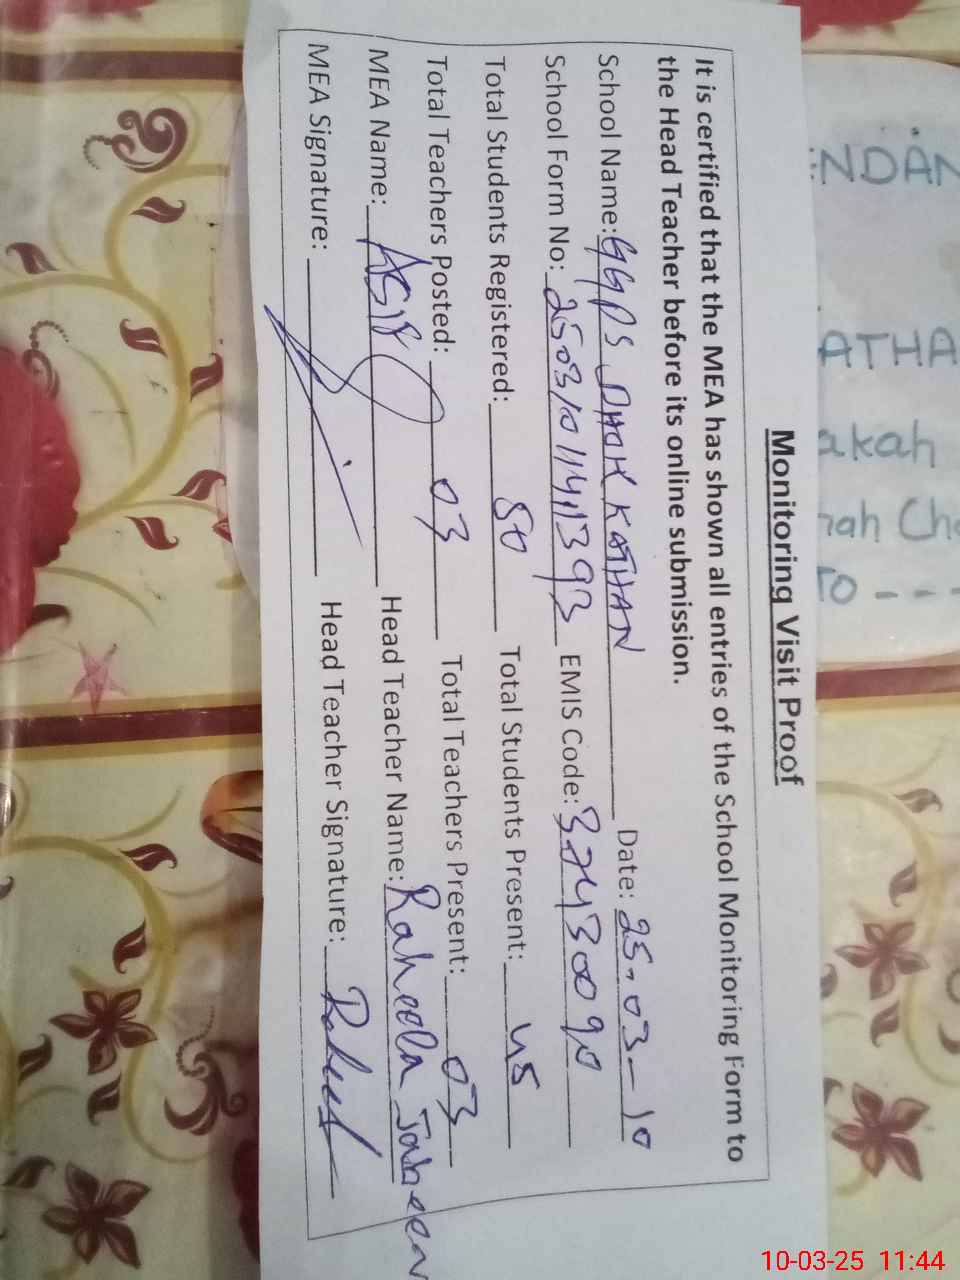 Monitoring Visit Proof
It is certified that the MEA has shown all entries of the School Monitoring Form to
the Head Teacher before its online submission.
School Name: GGPS DHOK KATHAN Date: 25-03-10
School Form No: 250310114113993 EMIS Code: 37430090
Total Students Registered: 80 Total Students Present: 45
Total Teachers Posted: 03 Total Teachers Present: 03
MEA Name: ASIF Head Teacher Name: Raheela Jabeen
MEA Signature: Head Teacher Signature:
NDAN
ATHA
akah
nah Cha
TO ---
10-03-25 11:44